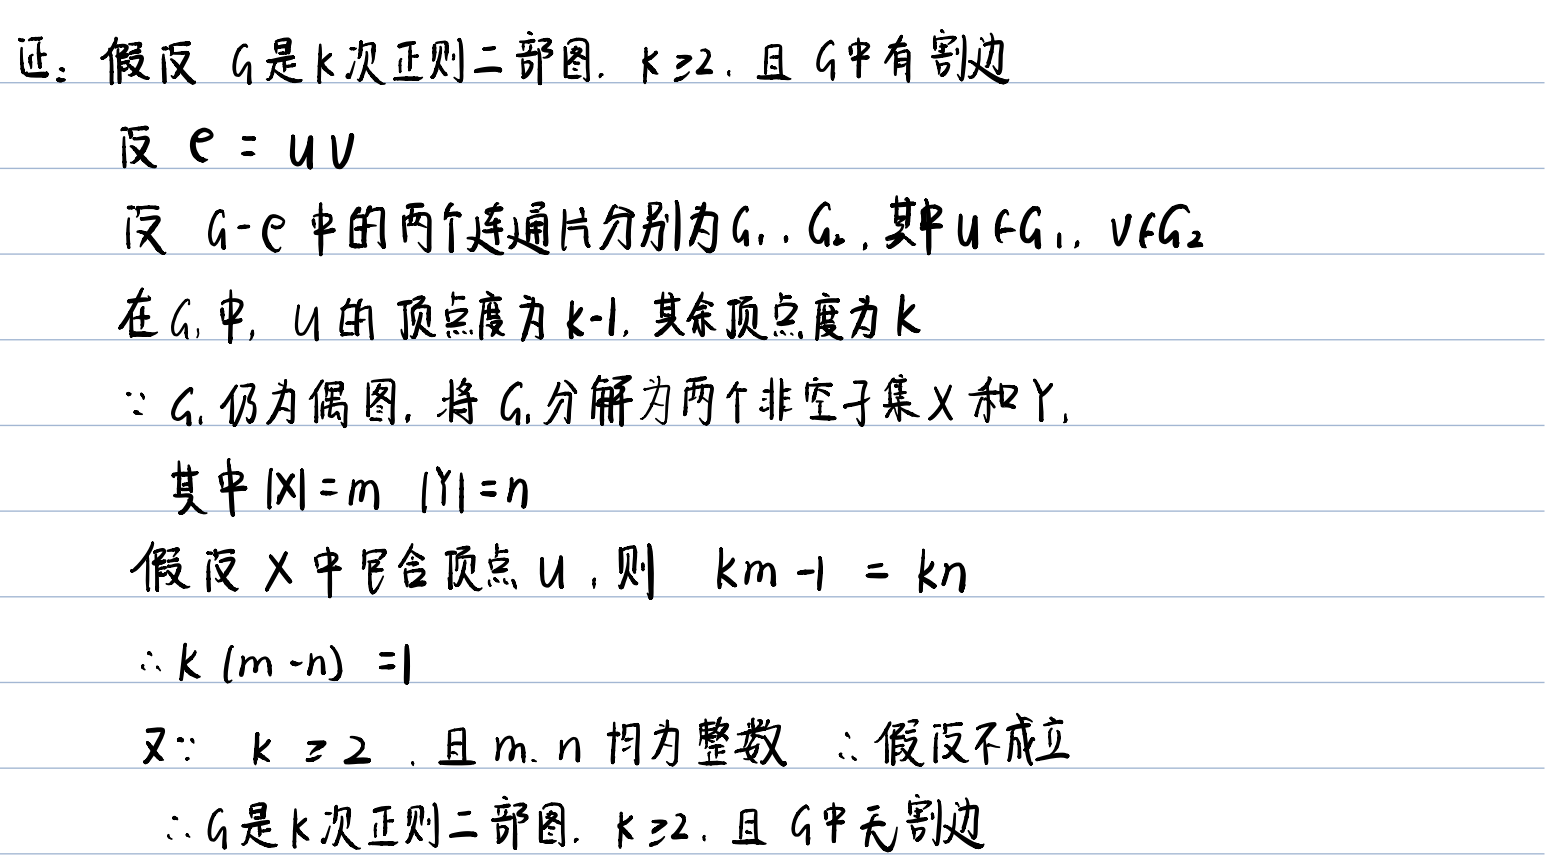 证: 假设 G是k次正则二部图. k≥2. 且 G中有割边
设 e = uv
设 G-e 中的两个连通片分别为G₁, G₂, 其中u∈G₁, v∈G₂
在G₁中, u的顶点度为k-1, 其余顶点度为k
∵ G₁仍为偶图, 将G₁分解为两个非空子集X和Y,
其中|X|=m |Y|=n
假设X中包含顶点u, 则 km-1 = kn
∴ k(m-n) =1
又∵ k≥2, 且m. n均为整数 ∴假设不成立
∴G是k次正则二部图. k≥2. 且 G中无割边